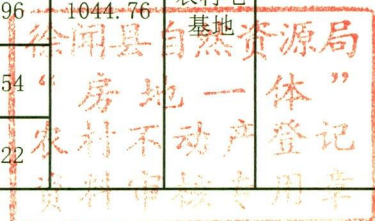 96 1044.76 农村宅
基地
徐闻县自然资源局
54
“房地一体”
农村不动产登记
22
资料审核专用章